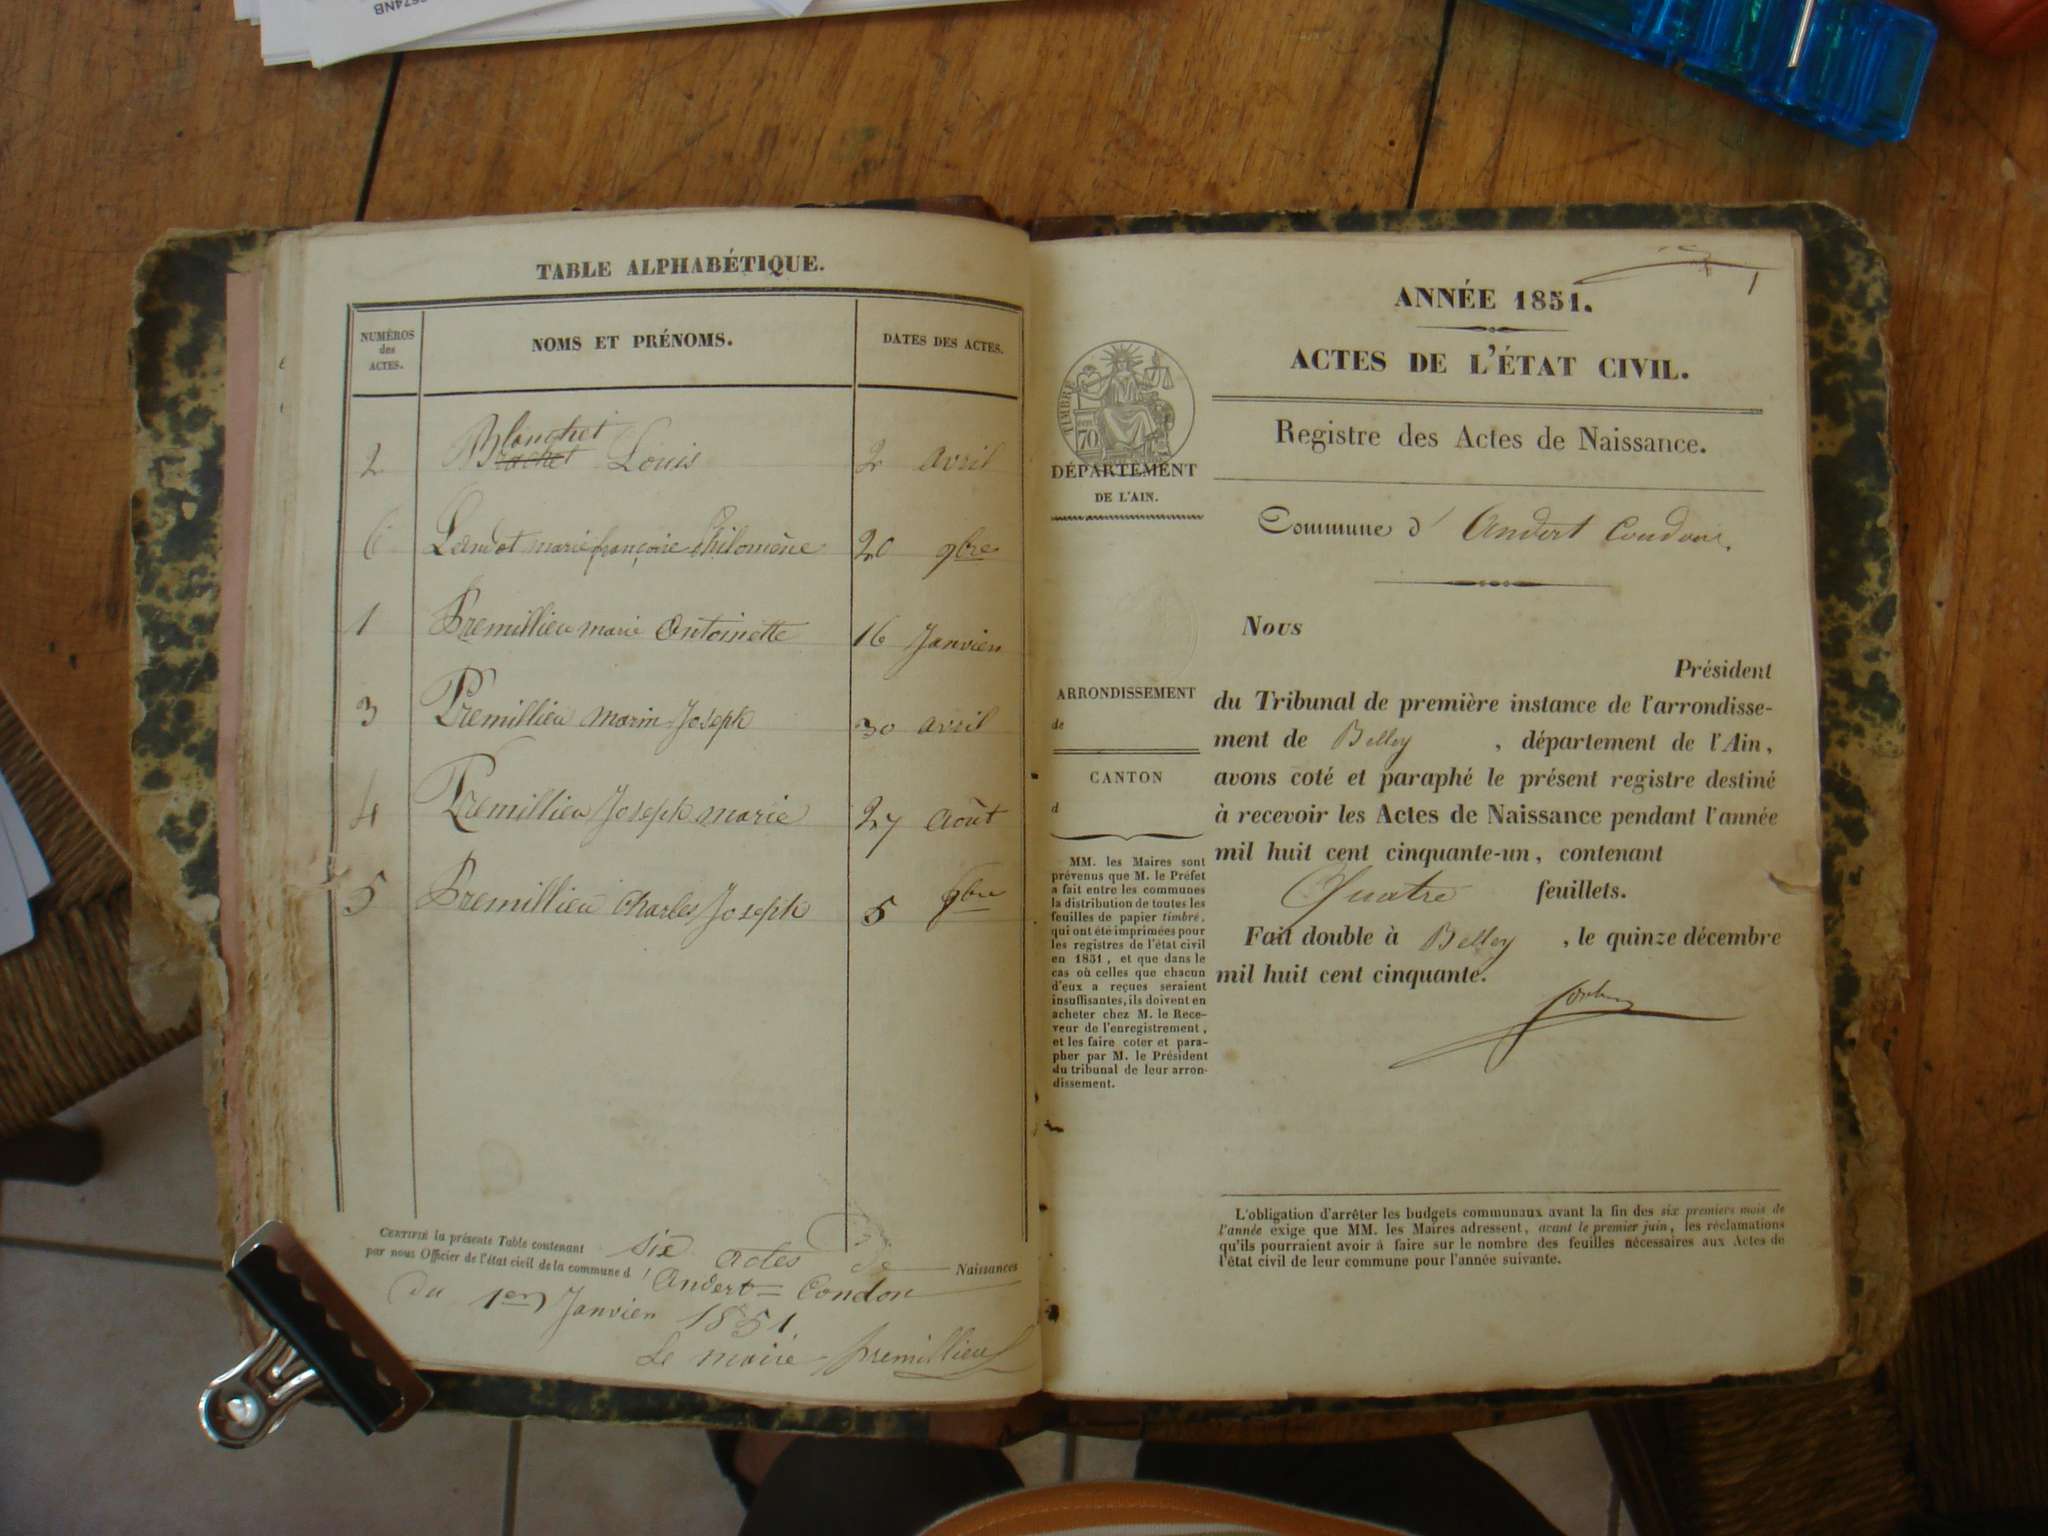 5674NB
TABLE ALPHABÉTIQUE.
NUMÉROS
des
ACTES.
NOMS ET PRÉNOMS.
DATES DES ACTES.
2 Blanchet
Brachet Louis 2 avril
6 Landot marie françoise Philomène 20 9bre
1 Premillieu marie Antoinette 16 Janvier
3 Premillieu Marin Joseph 30 avril
4 Premillieu Joseph marie 27 Août
5 Premillieu Charles Joseph 5 9bre
CERTIFIÉ la présente Table contenant six actes de Naissances
par nous Officier de l'état civil de la commune d' Andert = Condon
du 1er Janvier 1851.
Le maire Premillieu
1
ANNÉE 1851.
ACTES DE L'ÉTAT CIVIL.
Registre des Actes de Naissance.
TIMBRE
70
DÉPARTEMENT
DE L'AIN.
Commune d' Andert Condon.
ARRONDISSEMENT
de
CANTON
d
MM. les Maires sont
prévenus que M. le Préfet
a fait entre les communes
la distribution de toutes les
feuilles de papier timbré,
qui ont été imprimées pour
les registres de l'état civil
en 1851, et que dans le
cas où celles que chacun
d'eux a reçues seraient
insuffisantes, ils doivent en
acheter chez M. le Rece-
veur de l'enregistrement,
et les faire coter et para-
pher par M. le Président
du tribunal de leur arron-
dissement.
Nous
Président
du Tribunal de première instance de l'arrondisse-
ment de Belley , département de l'Ain,
avons coté et paraphé le présent registre destiné
à recevoir les Actes de Naissance pendant l'année
mil huit cent cinquante-un, contenant
Quatre feuillets.
Fait double à Belley , le quinze décembre
mil huit cent cinquante.
L'obligation d'arrêter les budgets communaux avant la fin des six premiers mois de
l'année exige que MM. les Maires adressent, avant le premier juin, les réclamations
qu'ils pourraient avoir à faire sur le nombre des feuilles nécessaires aux Actes de
l'état civil de leur commune pour l'année suivante.